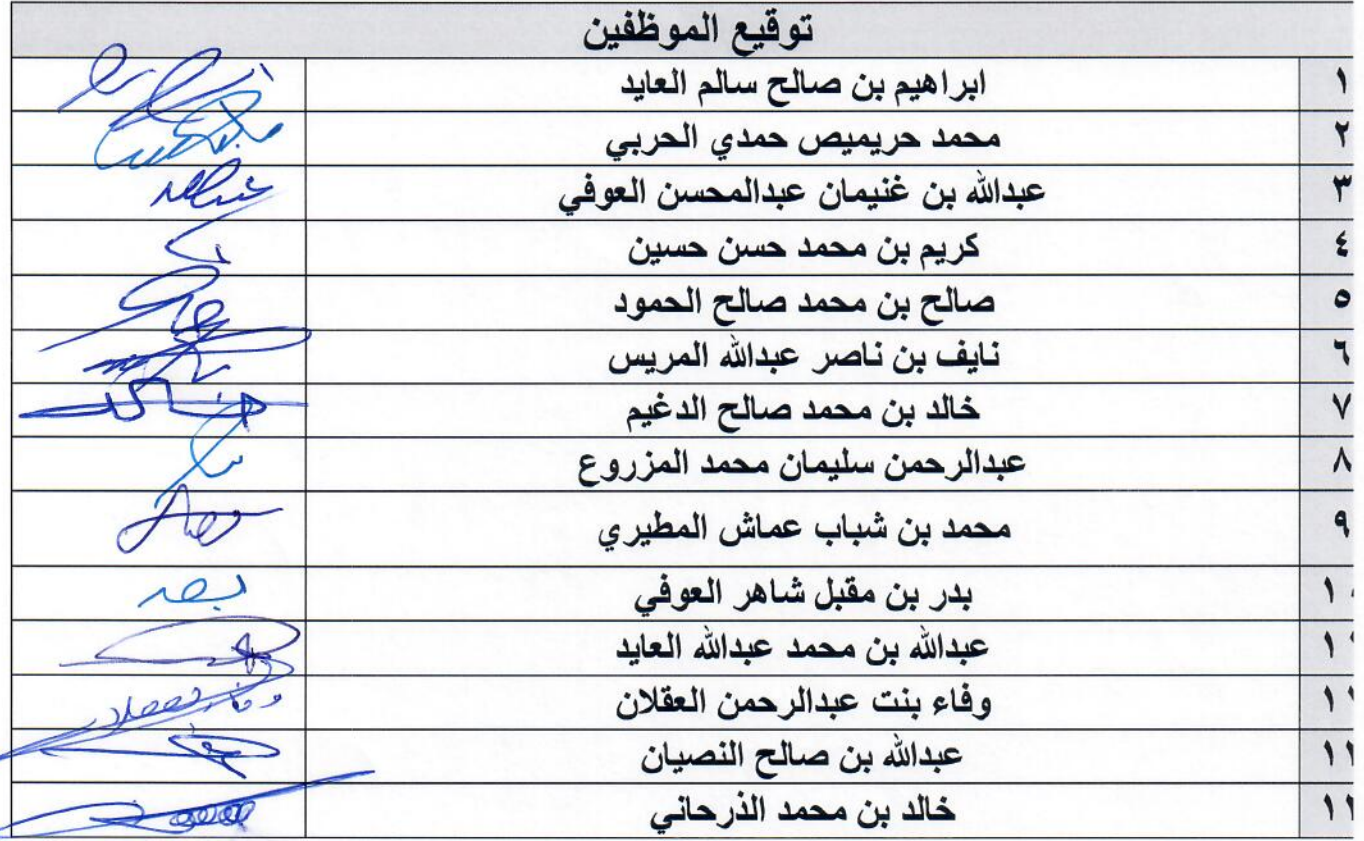 توقيع الموظفين
١ ابراهيم بن صالح سالم العايد
٢ محمد حريميص حمدي الحربي
٣ عبدالله بن غنيمان عبدالمحسن العوفي
٤ كريم بن محمد حسن حسين
٥ صالح بن محمد صالح الحمود
٦ نايف بن ناصر عبدالله المريس
٧ خالد بن محمد صالح الدغيم
٨ عبدالرحمن سليمان محمد المزروع
٩ محمد بن شباب عماش المطيري
بدر بن مقبل شاهر العوفي
عبدالله بن محمد عبدالله العايد
وفاء بنت عبدالرحمن العقلان
عبدالله بن صالح النصيان
خالد بن محمد الذرحاني